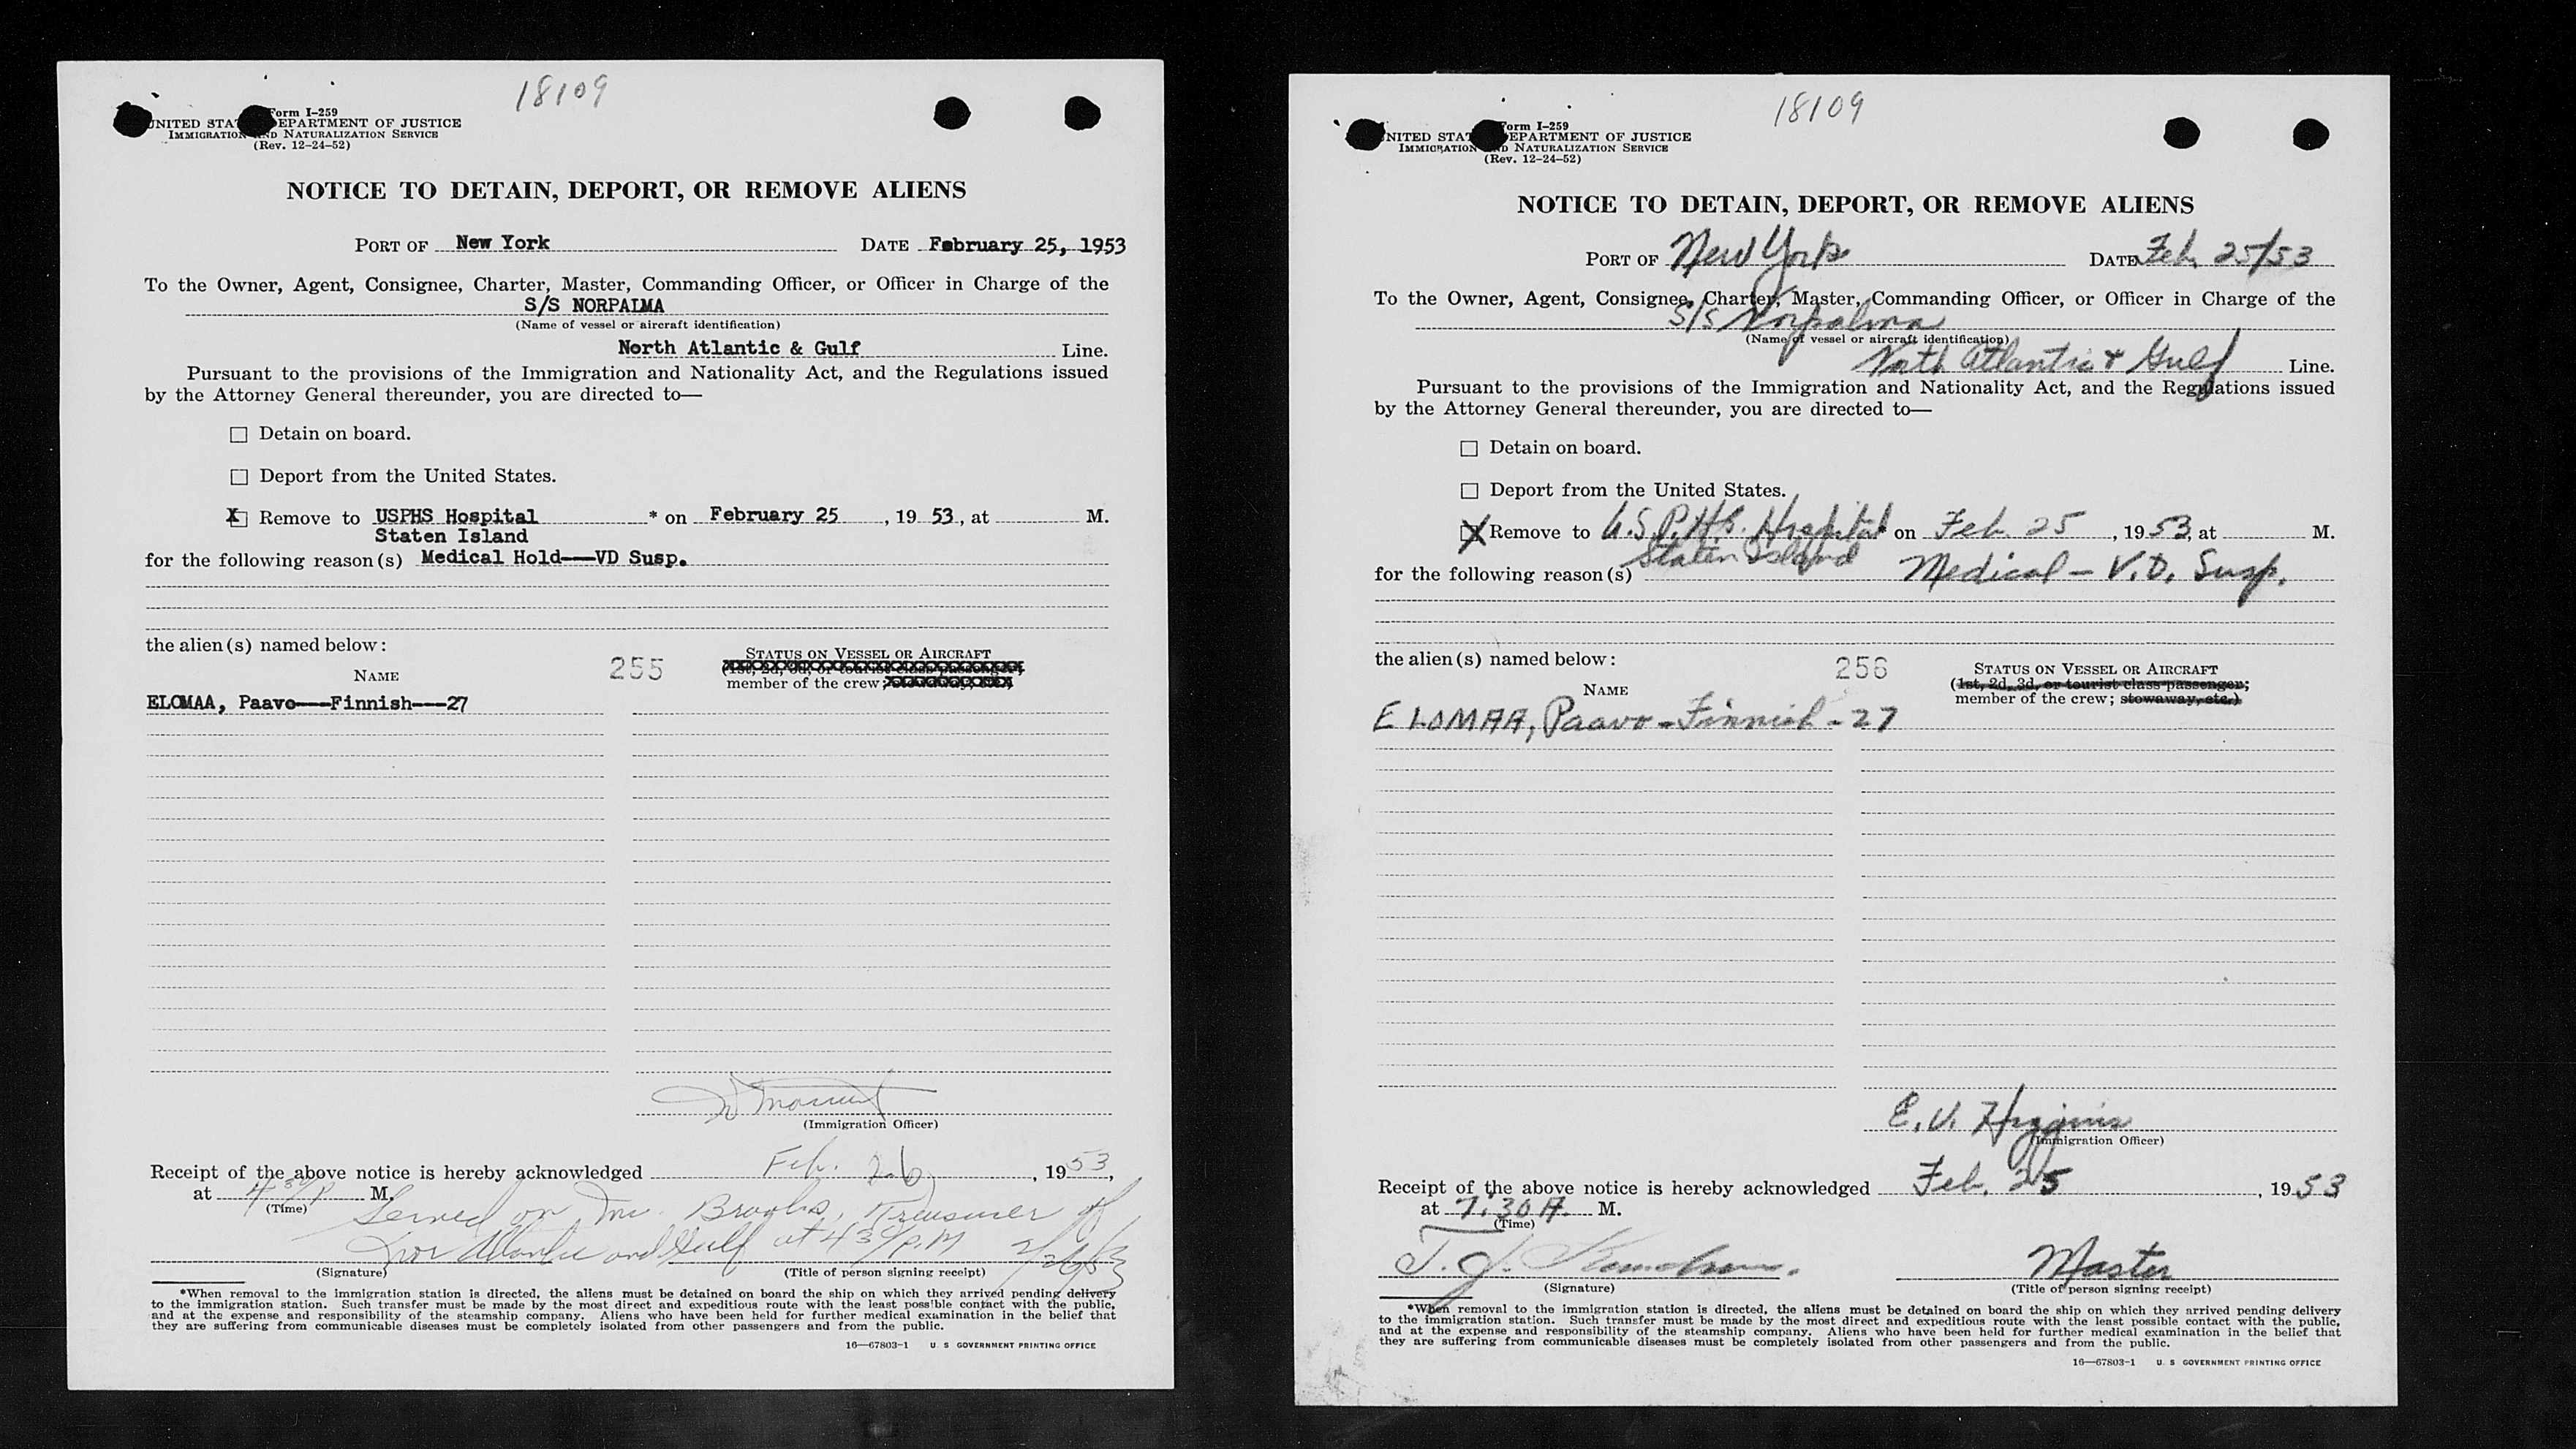 18109
Form I-259
UNITED STATES DEPARTMENT OF JUSTICE
IMMIGRATION AND NATURALIZATION SERVICE
(Rev. 12-24-52)
NOTICE TO DETAIN, DEPORT, OR REMOVE ALIENS
PORT OF New York DATE February 25, 1953
To the Owner, Agent, Consignee, Charter, Master, Commanding Officer, or Officer in Charge of the
S/S NORPALMA
(Name of vessel or aircraft identification)
North Atlantic & Gulf Line.
Pursuant to the provisions of the Immigration and Nationality Act, and the Regulations issued
by the Attorney General thereunder, you are directed to—
Detain on board.
Deport from the United States.
X Remove to USPHS Hospital * on February 25, 1953, at M.
Staten Island
for the following reason(s) Medical Hold---VD Susp.
the alien(s) named below:
255
STATUS ON VESSEL OR AIRCRAFT
(1st, 2d, 3d, or tourist class passenger;
NAME
member of the crew; stowaway, etc.)
ELOMAA, Paavo---Finnish---27
(Immigration Officer)
Receipt of the above notice is hereby acknowledged Feb. 26, 1953,
at 4 30/P M.
(Time)
Served on Mr. Brooks, Treasurer of
Nor Atlantic and Gulf at 4 30/P.M 2/26/53
(Signature) (Title of person signing receipt)
*When removal to the immigration station is directed, the aliens must be detained on board the ship on which they arrived pending delivery
to the immigration station. Such transfer must be made by the most direct and expeditious route with the least possible contact with the public,
and at the expense and responsibility of the steamship company. Aliens who have been held for further medical examination in the belief that
they are suffering from communicable diseases must be completely isolated from other passengers and from the public.
16—67803-1 U. S GOVERNMENT PRINTING OFFICE
18109
Form I-259
UNITED STATES DEPARTMENT OF JUSTICE
IMMIGRATION AND NATURALIZATION SERVICE
(Rev. 12-24-52)
NOTICE TO DETAIN, DEPORT, OR REMOVE ALIENS
PORT OF New York DATE Feb. 25/53
To the Owner, Agent, Consignee, Charter, Master, Commanding Officer, or Officer in Charge of the
S/S Norpalma
(Name of vessel or aircraft identification)
North Atlantic & Gulf Line.
Pursuant to the provisions of the Immigration and Nationality Act, and the Regulations issued
by the Attorney General thereunder, you are directed to—
Detain on board.
Deport from the United States.
X Remove to U.S.P.H.S. Hospital * on Feb. 25, 1953, at M.
Staten Island
for the following reason(s) Medical - V.D. Susp.
the alien(s) named below:
256
STATUS ON VESSEL OR AIRCRAFT
(1st, 2d, 3d, or tourist class passenger;
NAME
member of the crew; stowaway, etc.)
ELOMAA, Paavo - Finnish - 27
E. V. Higgins
(Immigration Officer)
Receipt of the above notice is hereby acknowledged Feb. 25, 1953
at 7:30 A. M.
(Time)
T. J. Master
(Signature) (Title of person signing receipt)
*When removal to the immigration station is directed, the aliens must be detained on board the ship on which they arrived pending delivery
to the immigration station. Such transfer must be made by the most direct and expeditious route with the least possible contact with the public,
and at the expense and responsibility of the steamship company. Aliens who have been held for further medical examination in the belief that
they are suffering from communicable diseases must be completely isolated from other passengers and from the public.
16—67803-1 U. S GOVERNMENT PRINTING OFFICE